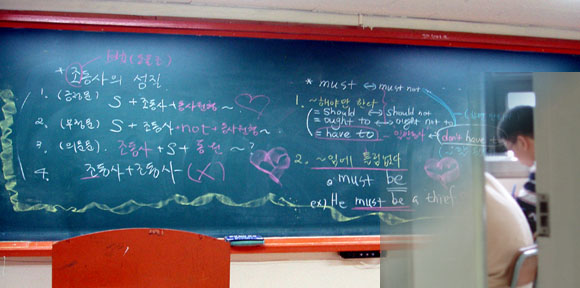 * 조동사의 성질
1. (긍정문) S + 조동사 + 동사원형 ~
2. (부정문) S + 조동사 + not + 동사원형 ~
3. (의문문). 조동사 + S + 동원 ~ ?
4. 조동사 + 조동사 (X)
* must ↔ must not
1. ~해야만 한다
= should ↔ should not
= ought to ↔ ought not to
= have to ↔ don't have to
2. ~임에 틀림없다
a must be
ex) He must be a thief.